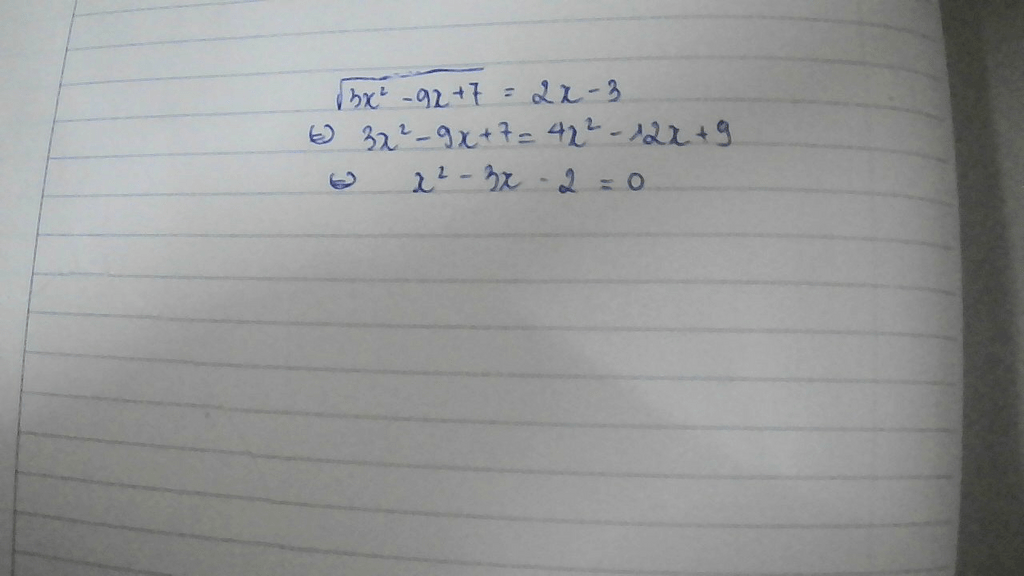 √(3x² - 9x + 7) = 2x - 3
⇔ 3x² - 9x + 7 = 4x² - 12x + 9
⇔ x² - 3x - 2 = 0